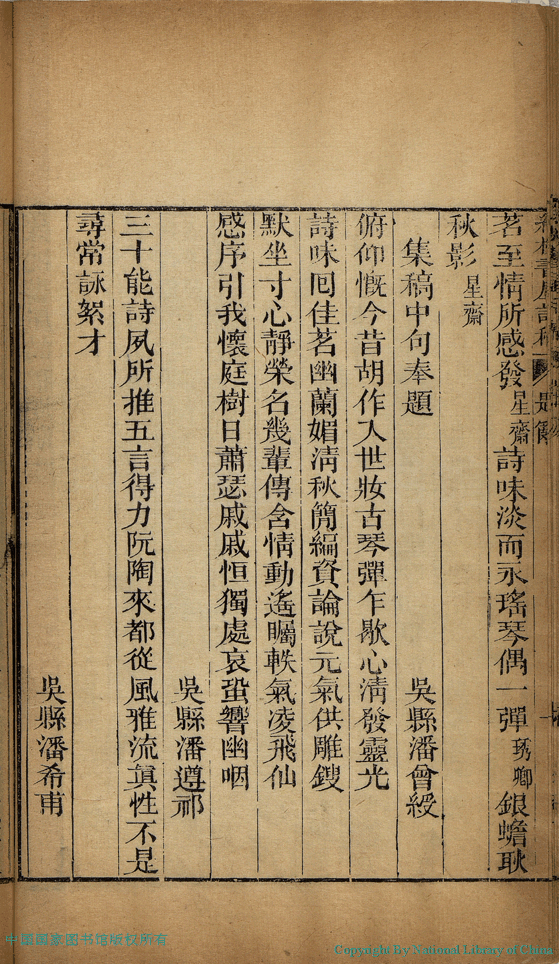 茗至情所感發星齋詩味淡而永瑤琴偶一彈琇卿銀蟾耿
秋影星齋
集稿中句奉題
吳縣潘曾綬
俯仰慨今昔胡作人世妝古琴彈乍歇心淸發靈光
詩味囘佳茗幽蘭媚淸秋簡編資論說元氣供雕鎪
默坐寸心靜榮名幾輩傳含情動遙矚軼氣凌飛仙
感序引我懷庭樹日蕭瑟戚戚恒獨處哀蛩響幽咽
吳縣潘遵祁
三十能詩夙所推五言得力阮陶來都從風雅流眞性不是
尋常詠絮才
吳縣潘希甫
中国国家图书馆版权所有
Copyright by National Library of China